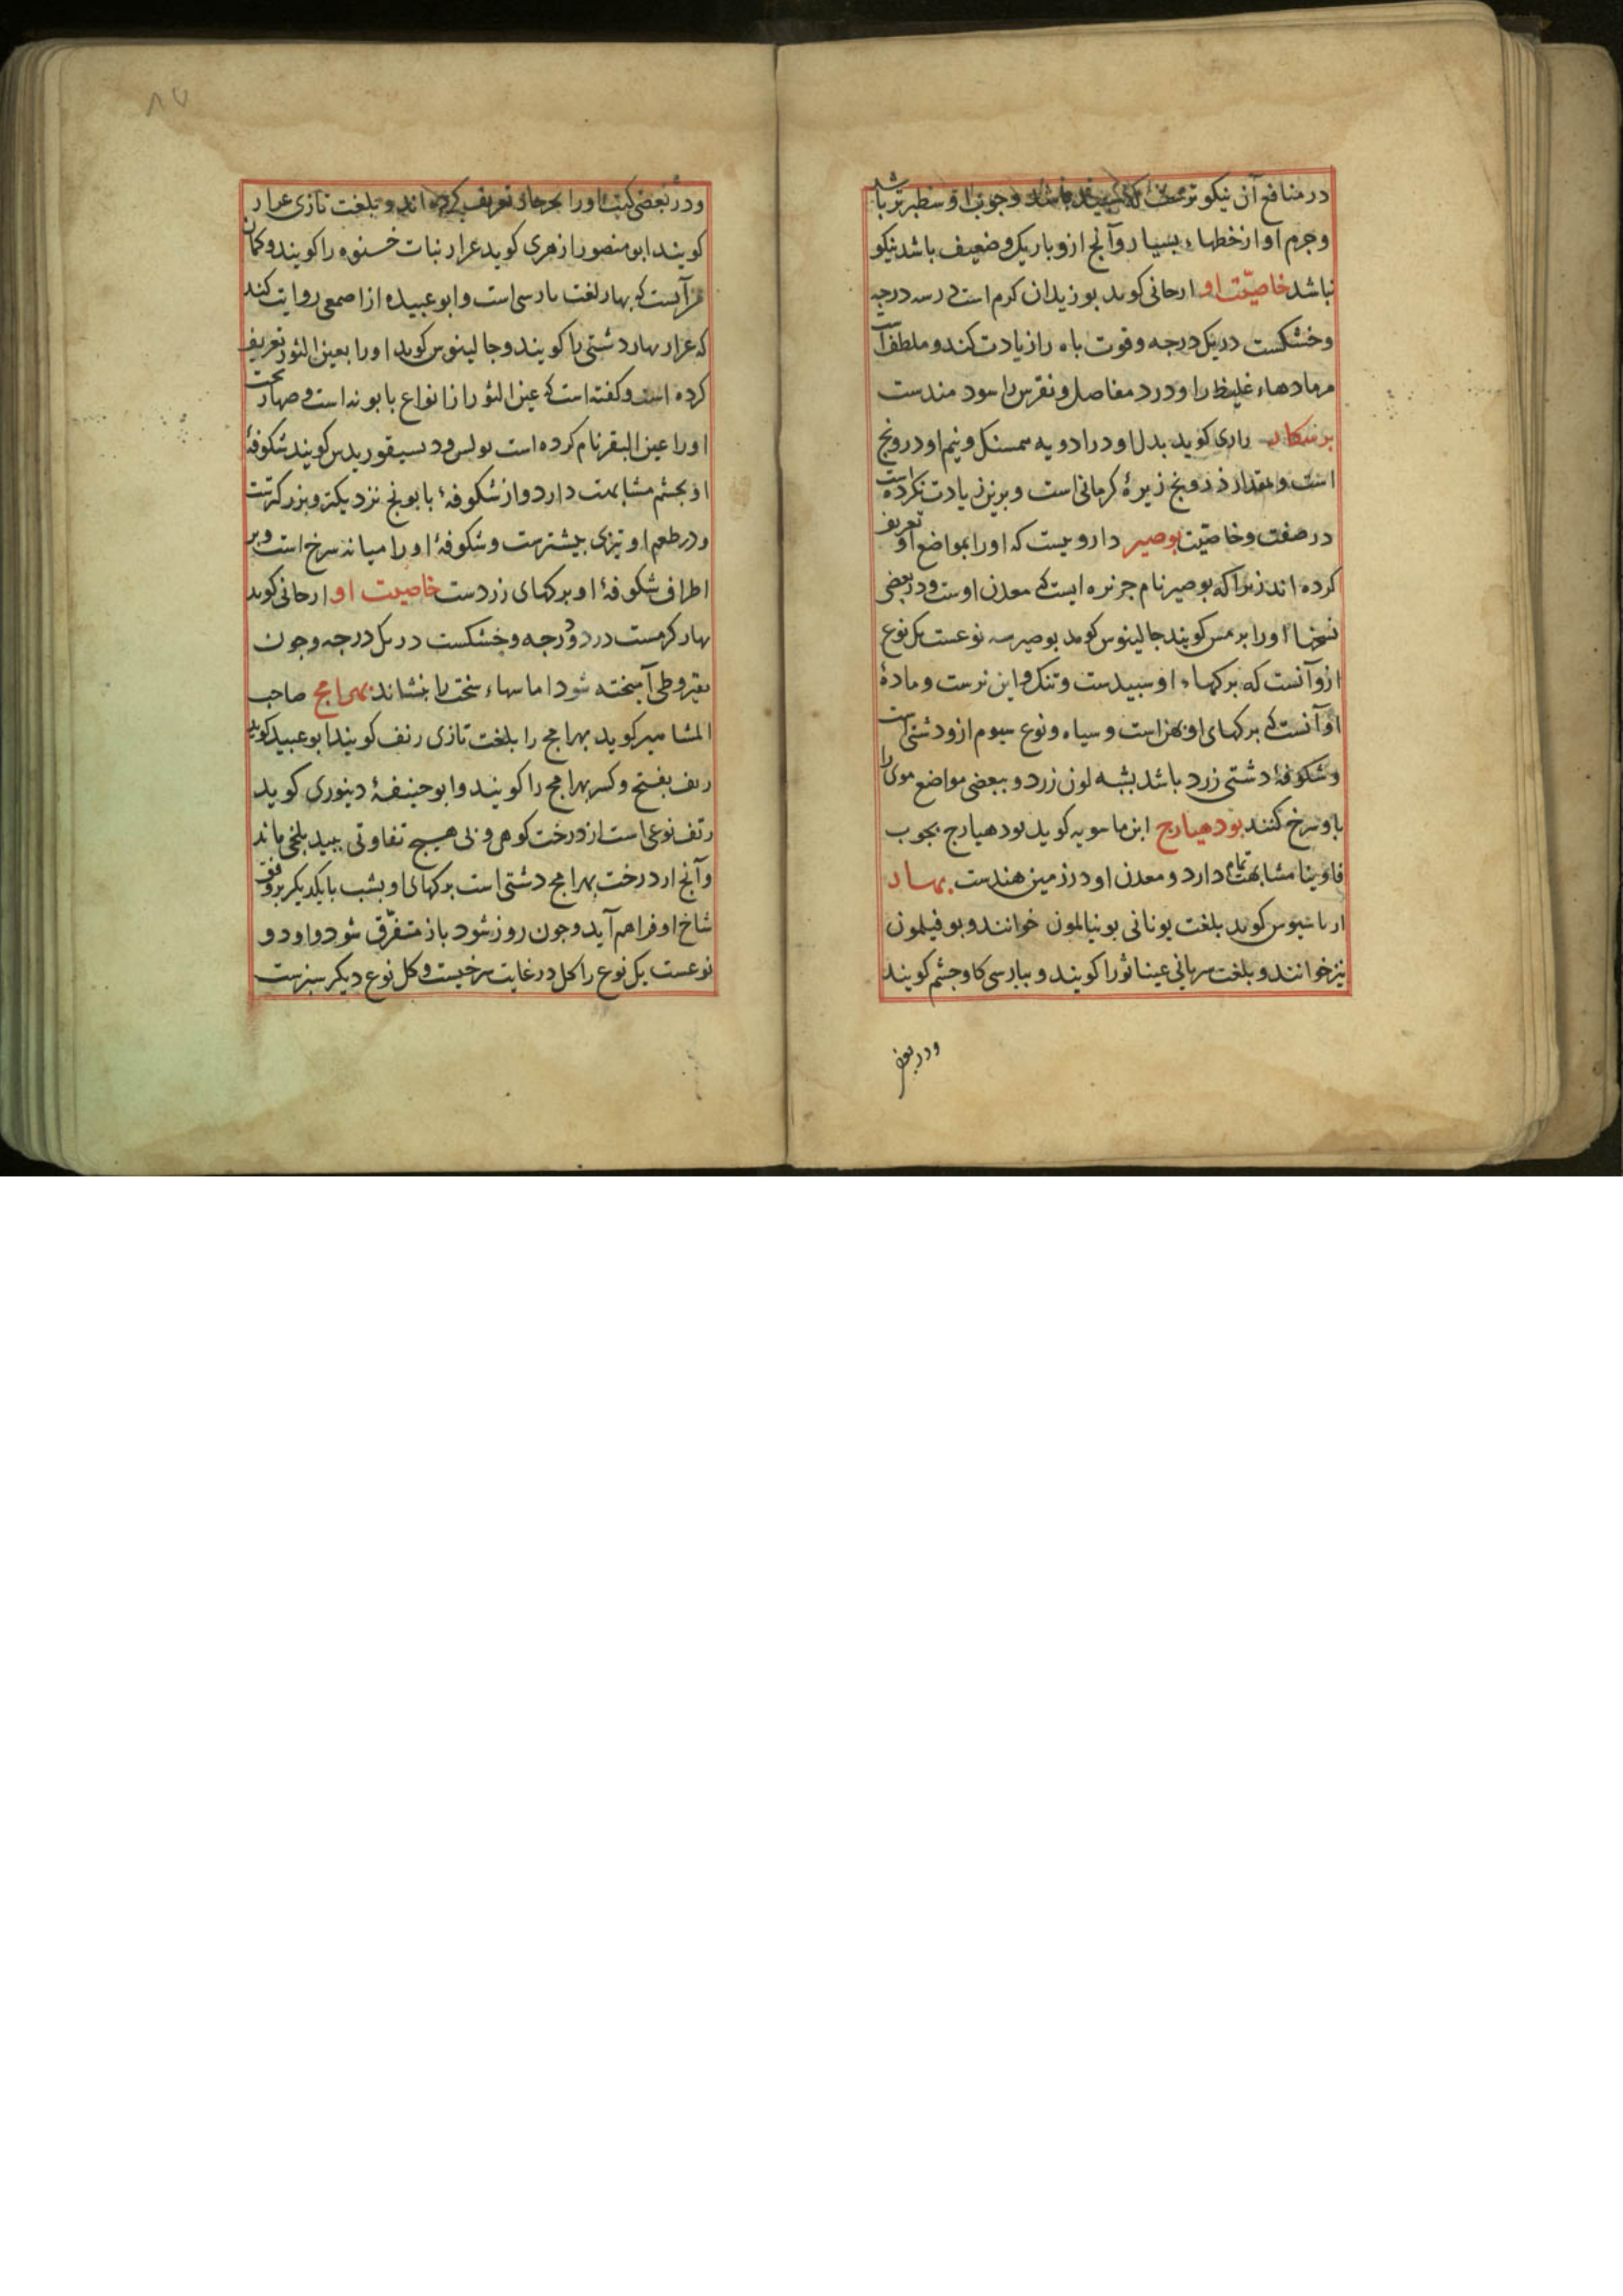 در منافع آن نیکوتر باشد و چوب او سطبرتر باشد
و جرم او از خطها، بسیار و آنج ازو باریک و ضعیف باشد نیکو
نباشد خاصیّت او ارجانی کوید بوزیدان کرم است در سه درجه
و خشکست در یک درجه و قوت باه را زیادت کند و ملطف است
مر مادهاء غلیظ را و درد مفاصل و نقرس را سود مندست
رازی کوید بدل او در ادویه همسنک و نیم او درونج
است و مقدار درونج زیرهٔ کرمانی است و برین زیادت نکرده است
در صفت و خاصیّت بوصیر دارویست که او را بمواضع او تعریف
کرده اند زیرا که بوصیر نام جزیره ایست که معدن اوست و در بعضی
نسخها او را برمس کویند جالینوس کوید بوصیر سه نوعست یک نوع
ازو آنست که برکهاء او سپیدست و تنک و این نرست و مادهٔ
او آنست که برکهای او پهن است و سیاه و نوع سیوم ازو دشتی است
و شکوفهٔ دشتی زرد باشد بشبه لون زرد و ببعضی مواضع موی را
باو سرخ کنند بودهیارج ابن ماسویه کوید بودهیارج بچوب
فاوینا مشابهت تمام دارد و معدن او در زمین هندست بهار
ارباسیوس کوید بلغت یونانی بونیالمون خوانند و بوفیلمون
نیز خوانند و بلغت سریانی عیناثورا کویند و بپارسی کاوچشم کویند
ودر بعضی
۸۷
ودر بعضی کتب او را تعریف کرده اند و بلغت تازی عرار
کویند ابو منصور ازهری کوید عرار نبات خسنوه را کویند و کمان
من آنست که بهار لغت پارسی است و ابو عبیده از اصمعی روایت کند
که عرار بهار دشتی را کویند و جالینوس کوید او را بعین الثور تعریف
کرده است و کفته است که عین الثور از انواع بابونه است و صهاربخت
او را عین البقر نام کرده است بولس و دیسیقوریدس کویند شکوفهٔ
او بچشم مشابهت دارد و از شکوفهٔ بابونج نزدیکتر و بزرکترست
و در طعم او تیزی بیشترست و شکوفهٔ او را میانه سرخ است و بر
اطراف شکوفهٔ او برکهای زردست خاصیت او ارجانی کوید
بهار کرمست در دو درجه و خشکست در یک درجه و چون
بقیروطی آمیخته شود اماسهاء سخت را بنشاند بهرامج صاحب
المشاهیر کوید بهرامج را بلغت تازی رنف کویند ابو عبید کوید
رنف بفتح و کسر بهرامج را کویند و ابو حنیفهٔ دینوری کوید
رنف نوعی است از درخت کوهی و بی هیچ تفاوتی ببید بلخی ماند
و آنج از درخت بهرامج دشتی است برکهای او بشب بایکدیکر بر وفق
شاخ او فراهم آید و چون روز شود باز متفرّق شود و او دو
نوعست یک نوع را کل در غایت سرخیست و کل نوع دیکر سبزست